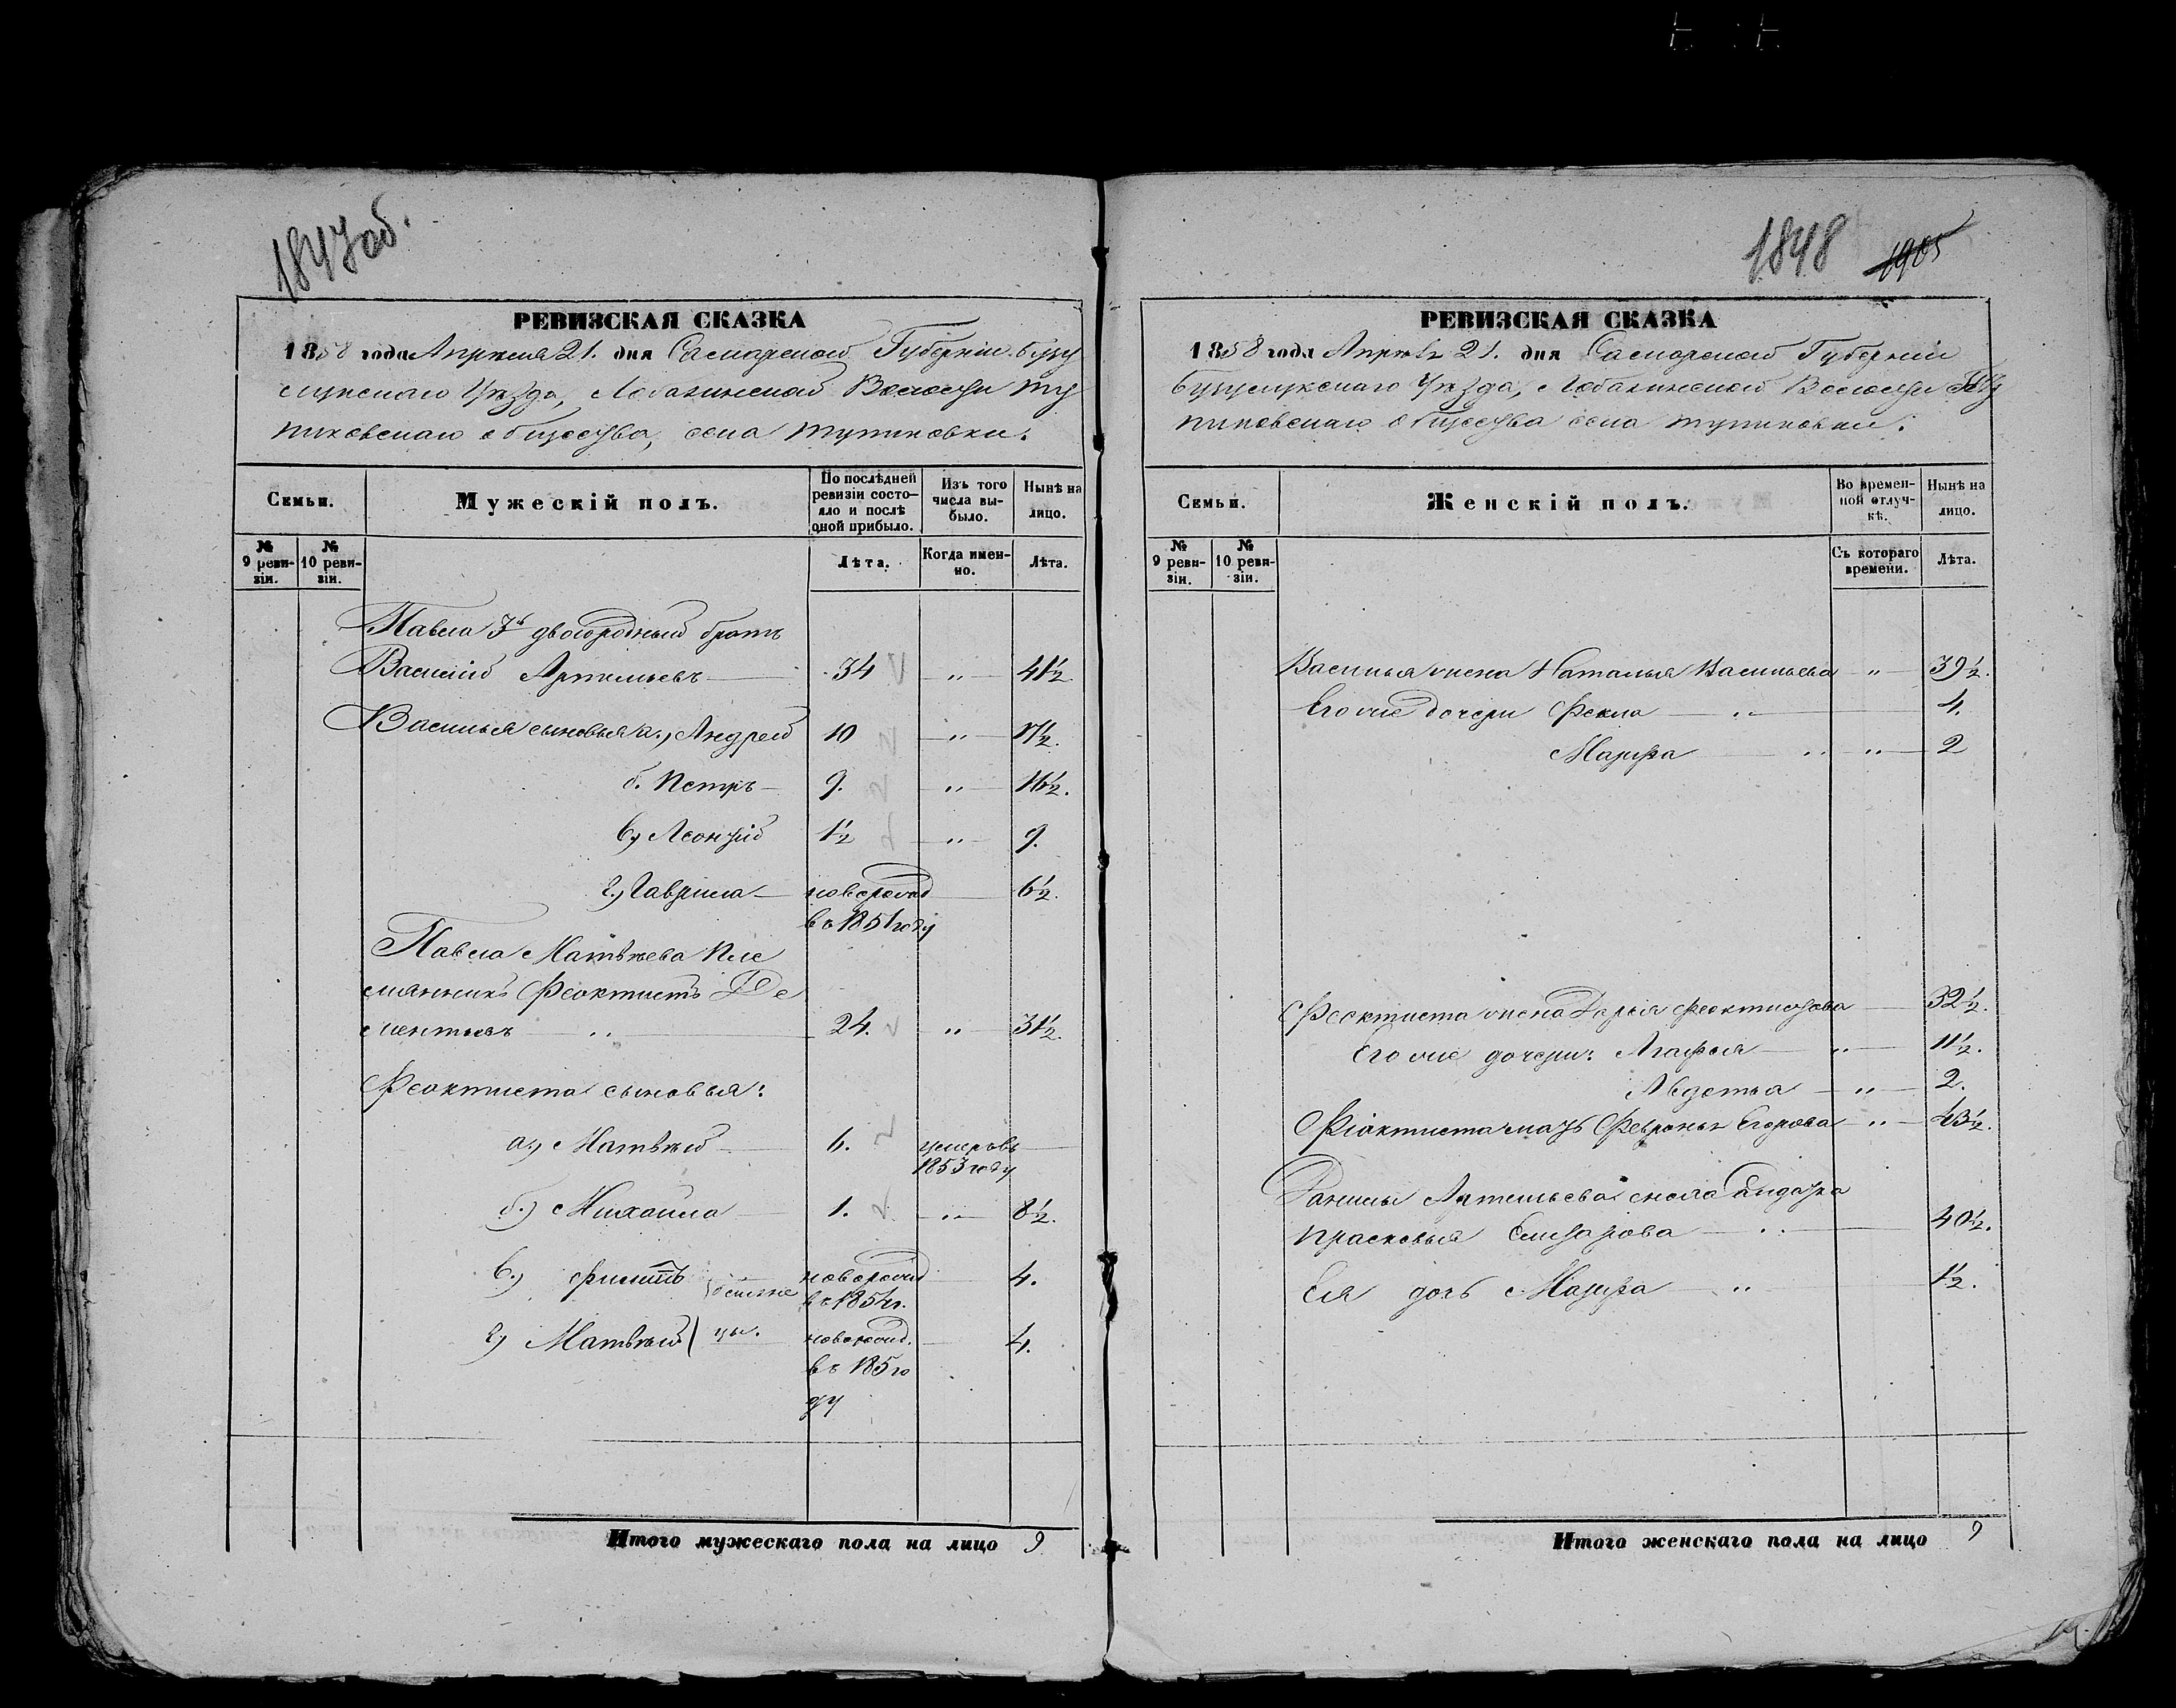 1847 об.
РЕВИЗСКАЯ СКАЗКА
1858 года Апреля 21. дня Самарской Губернiи Бузу
лукскаго Уѣзда, Лобазинской Волости Ту
пиковскаго общества, села Тупиковки.
Семьи.
Мужескiй полъ.
По послѣдней ревизiи состо-яло и послѣ оной прибыло.
Изъ того числа вы-было.
Нынѣ на лицо.
№ 9 реви-зiи.
№ 10 реви-зiи.
Лѣта.
Когда имен-но.
Лѣта.
Павла 3й двоюродный братъ
Василiй Артемьевъ 34 " 41½.
Василья сыновья а., Андрей 10 " 17½.
б. Петръ 9. " 16½.
в, Леонтiй 1½ " 9.
г., Гаврила новорожд 6½.
въ 1851 году
Павла Матвѣева пле
мянникъ Феоктистъ Де
ментьевъ " 24. " 31½.
Феоктиста сыновья:
а., Матвѣй 6. умеръ въ
1853 году
б.) Михаила 1. " 8½.
в.) Филипъ близне новорожд 4.
въ 1854 г.
г) Матвѣй цы. новорожд. 4.
въ 185 го
ду
Итого мужескаго пола на лицо 9
1848 1905
РЕВИЗСКАЯ СКАЗКА
1858 года Апрѣля 21. дня Самарской Губернiи
Бузулукскаго Уѣзда, Лобазинской Волости Ту
пиковскаго общества села Тупиковки.
Семьи.
Женскiй полъ.
Во времен-ной отлуч-кѣ.
Нынѣ на лицо.
№ 9 реви-зiи.
№ 10 реви-зiи.
Съ котораго времени.
Лѣта.
Василья жена Наталья Васильева " 39½.
Его же дочери Фекла " 4.
Марфа " " 2
Феоктиста жена Дарья Феоктистова 32½.
Его же дочери: Агафья " 11½.
Авдотья " 2.
Фiоктиста мать Февронья Егорова " 43½.
Данилы Артемьева снога солдатка
Прасковья Елизарова " 40½.
Ея дочь Марфа " 1½.
Итого женскаго пола на лицо 9